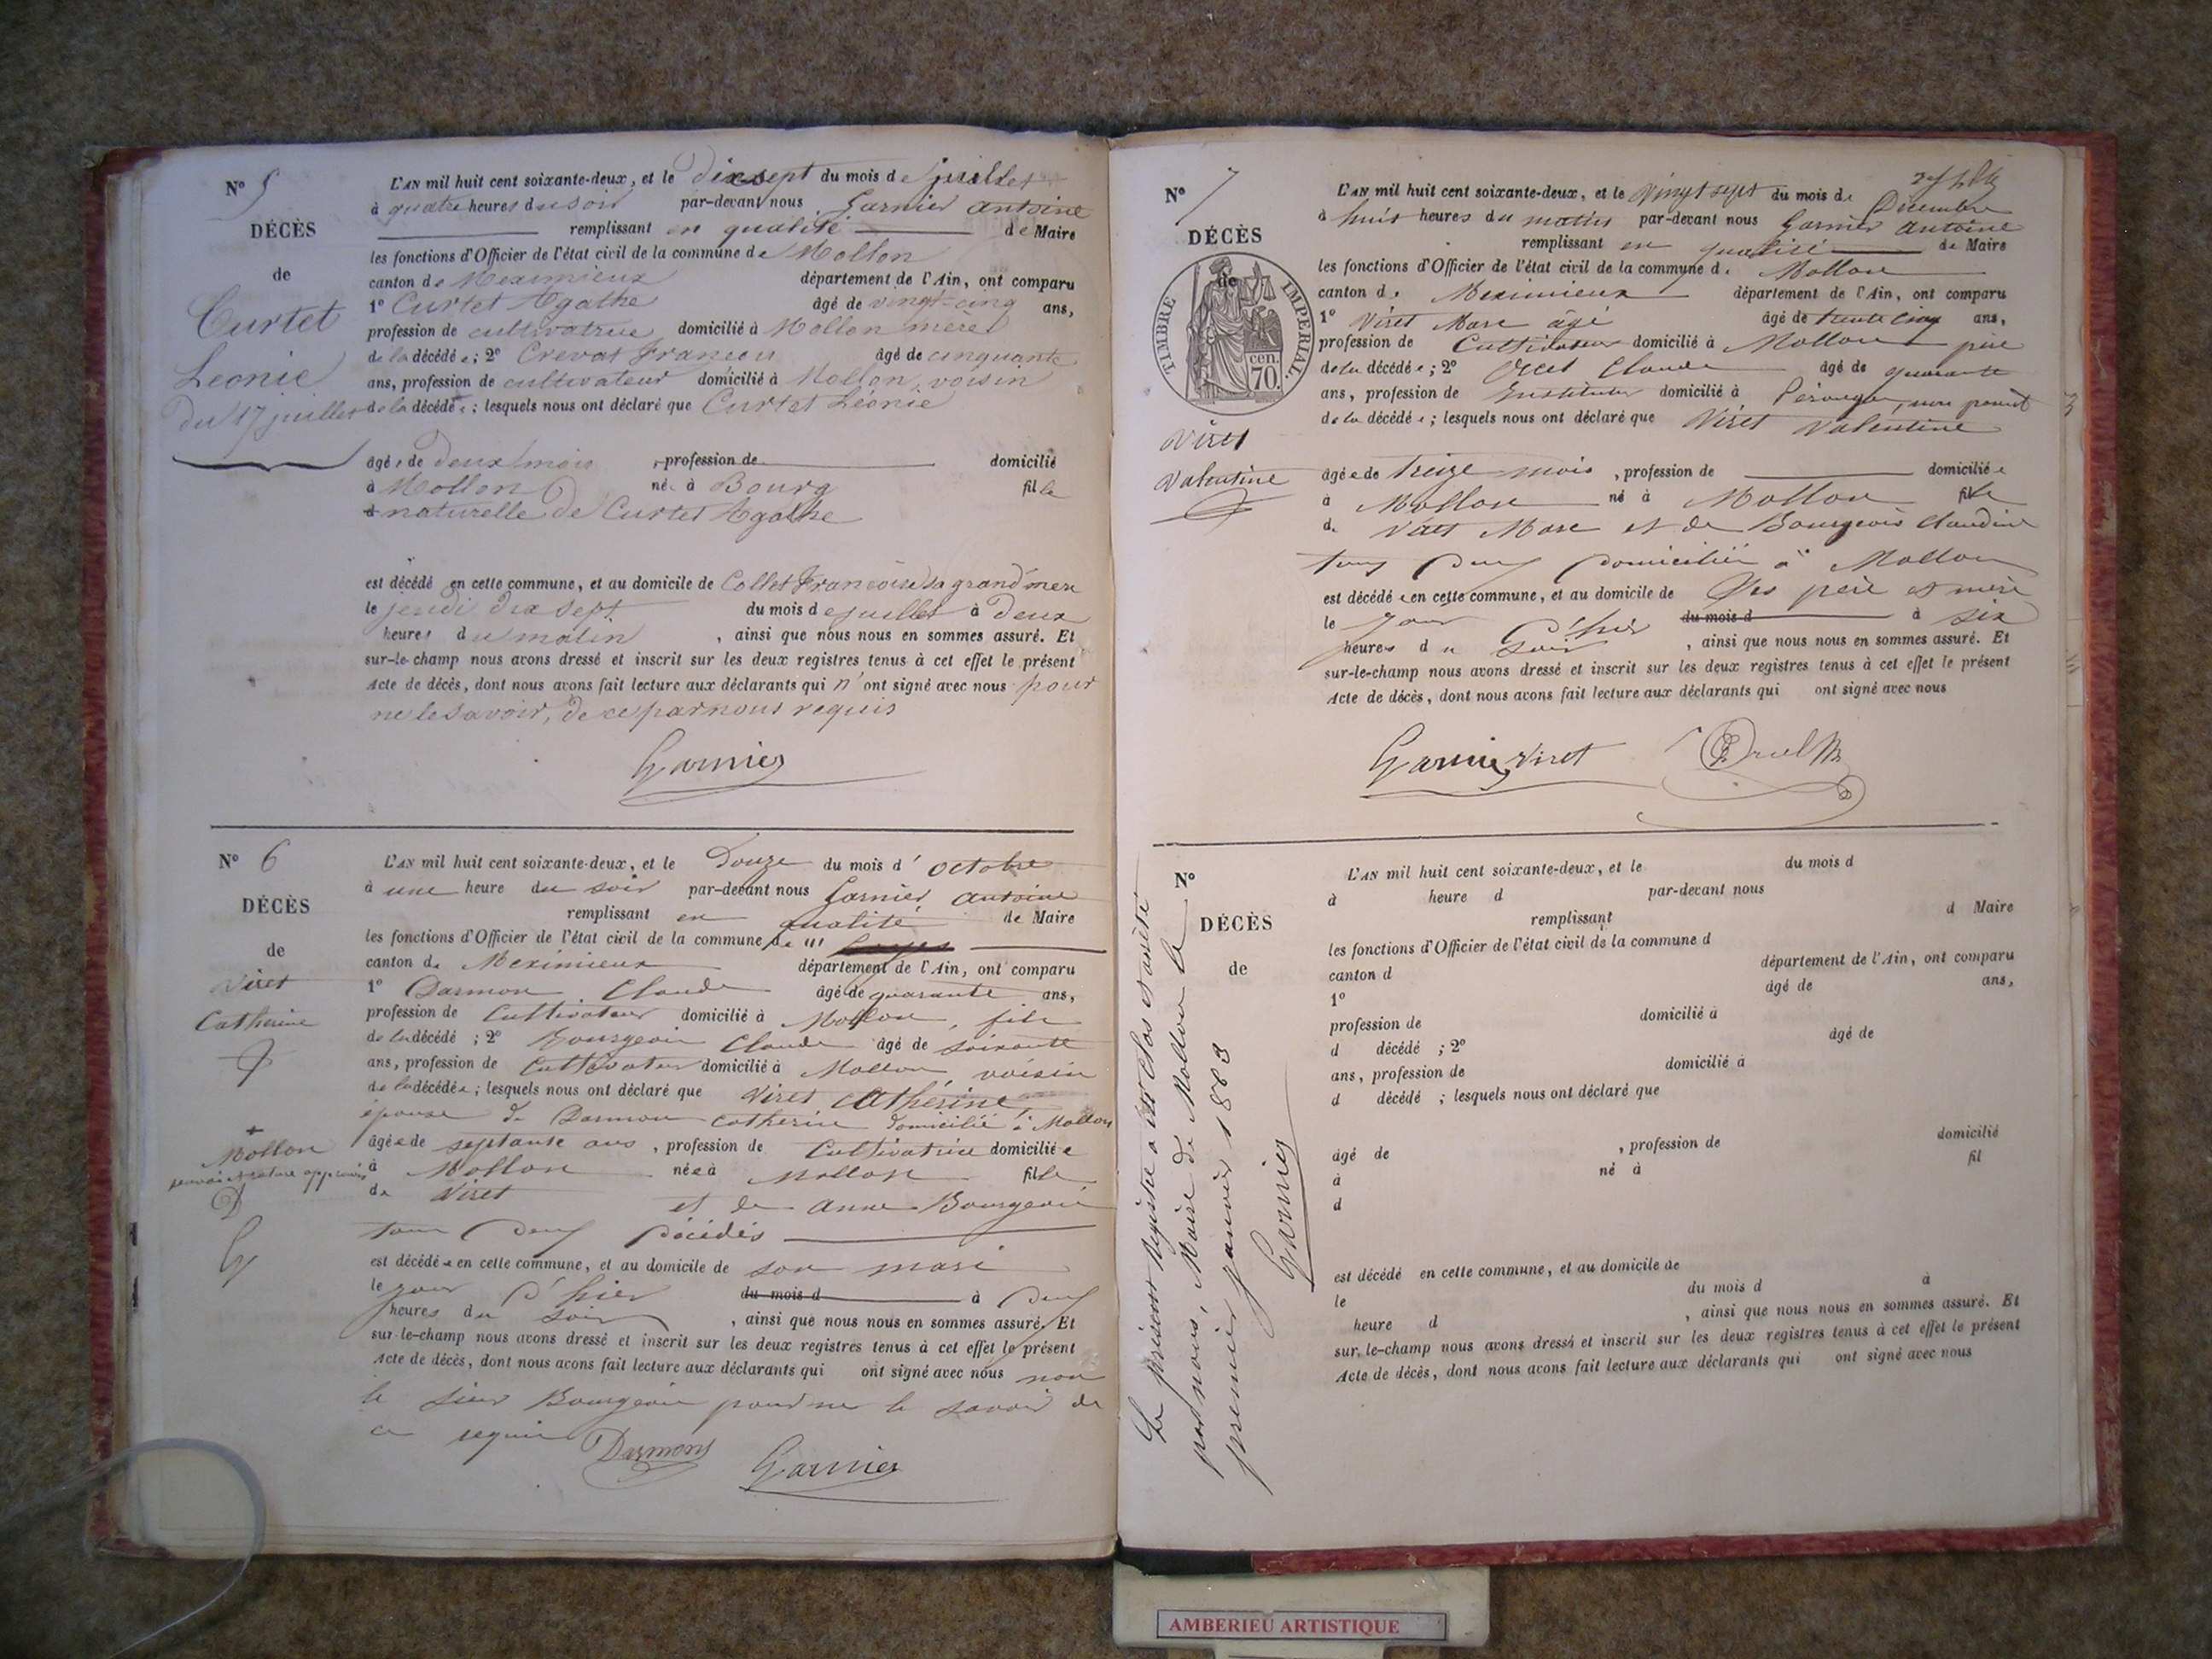 N° 5
DÉCÈS
de
Curtet
Leonie
du 17 juillet
L'AN mil huit cent soixante-deux, et le dix sept du mois de juillet
à quatre heures du soir par-devant nous Garnier antoine
remplissant en qualité de Maire
les fonctions d'Officier de l'état civil de la commune de Mollon
canton de Meximieux département de l'Ain, ont comparu
1° Curtet Agathe âgé de vingt-cinq ans,
profession de cultivatrice domicilié à Mollon mère
de la décédée; 2° Crevat François âgé de cinquante
ans, profession de cultivateur domicilié à Mollon, voisin
de la décédée; lesquels nous ont déclaré que Curtet Léonie
âgée de deux mois, profession de domicilié
à Mollon née à Bourg fille
naturelle de Curtet Agathe
est décédé en cette commune, et au domicile de Collet Françoise sa grand'mère
le jeudi dix sept du mois de juillet à deux
heures du matin, ainsi que nous nous en sommes assuré. Et
sur-le-champ nous avons dressé et inscrit sur les deux registres tenus à cet effet le présent
Acte de décès, dont nous avons fait lecture aux déclarants qui n'ont signé avec nous pour
ne le savoir, de ce par nous requis
Garnier
N° 6
DÉCÈS
de
Viret
Catherine
Mollon
L'AN mil huit cent soixante-deux, et le Douze du mois d'octobre
à une heure du soir par-devant nous Garnier antoine
remplissant en qualité de Maire
les fonctions d'Officier de l'état civil de la commune de
canton de Meximieux département de l'Ain, ont comparu
1° Darmon Claude âgé de quarante ans,
profession de Cultivateur domicilié à Mollon, fils
de la décédé; 2° Bourgeois Claude âgé de soixante
ans, profession de Cultivateur domicilié à Mollon voisin
de la décédée; lesquels nous ont déclaré que Viret Catherine
épouse de Darmon catherin domicilié à Mollon
âgée de septante ans, profession de Cultivatrice domiciliée
à Mollon née à Mollon fille
de Viret et de Anne Bourgeois
tous deux décédés
est décédée en cette commune, et au domicile de son mari
le jour d'hier du mois d à deux
heures du soir, ainsi que nous nous en sommes assuré. Et
sur-le-champ nous avons dressé et inscrit sur les deux registres tenus à cet effet le présent
Acte de décès, dont nous avons fait lecture aux déclarants qui ont signé avec nous non
le sieur Bourgeois pour ne le savoir de
ce requis Darmont Garnier
N° 7
DÉCÈS
de
TIMBRE IMPÉRIAL.
cen. 70.
Viret
Valentine
L'AN mil huit cent soixante-deux, et le Vingt sept du mois de Décembre
à huit heures du matin par-devant nous Garnier antoine
remplissant en qualité de Maire
les fonctions d'Officier de l'état civil de la commune d. Mollon
canton d. Meximieux département de l'Ain, ont comparu
1° Viret Marc âgé âgé de trente cinq ans,
profession de Cultivateur domicilié à Mollon père
de la décédée; 2° Claude âgé de quarante
ans, profession de Instituteur domicilié à Pérouges, non parent
de la décédée; lesquels nous ont déclaré que Viret Valentine
âgée de treize mois, profession de domiciliée
à Mollon né à Mollon fille
d. Viret Marc et de Bourgeois Claudine
tous deux domiciliés à Mollon
est décédée en cette commune, et au domicile de Ses père et mère
le jour d'hier du mois d à six
heures du Soir, ainsi que nous nous en sommes assuré. Et
sur-le-champ nous avons dressé et inscrit sur les deux registres tenus à cet effet le présent
Acte de décès, dont nous avons fait lecture aux déclarants qui ont signé avec nous
Garnier Viret
Le présent Registre a été clos et arrêté
par nous, Maire de Mollon le
premier janvier 1863
Garnier
N°
DÉCÈS
de
L'AN mil huit cent soixante-deux, et le du mois d
à heure d par-devant nous
remplissant d Maire
les fonctions d'Officier de l'état civil de la commune d
canton d département de l'Ain, ont comparu
1° âgé de ans,
profession de domicilié à
d décédé ; 2° âgé de
ans, profession de domicilié à
d décédé ; lesquels nous ont déclaré que
âgé de , profession de domicilié
à né à fil
d
est décédé en cette commune, et au domicile de
le du mois d à
heure d , ainsi que nous nous en sommes assuré. Et
sur-le-champ nous avons dressé et inscrit sur les deux registres tenus à cet effet le présent
Acte de décès, dont nous avons fait lecture aux déclarants qui ont signé avec nous
AMBERIEU ARTISTIQUE